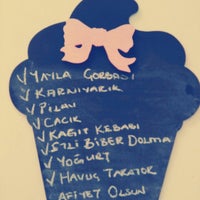 √ YAYLA ÇORBASI
√ KARNIYARIK
√ PİLAV
√ CACIK
√ KAĞIT KEBABI
√ ETLİ BİBER DOLMA
√ YOĞURT
√ HAVUÇ TARATOR
AFİYET OLSUN